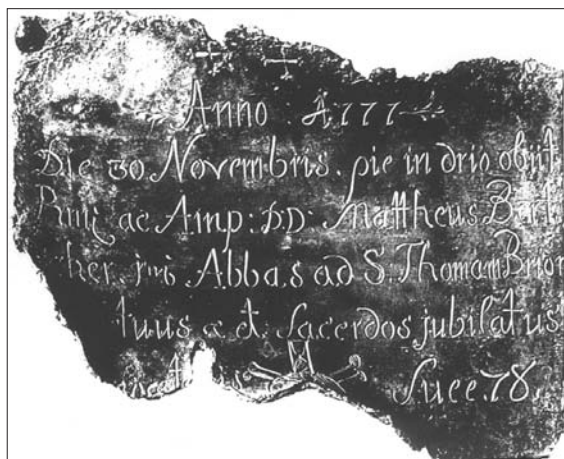 Anno 1777
Die 30 Novembris. pie in drio obiit
Rmg ac Amp: D.D: Mattheus Bert
her. jmi Abbas ad S. Thomam Brun
tuus a et. Sacerdos jubilatus
Suee. 78.